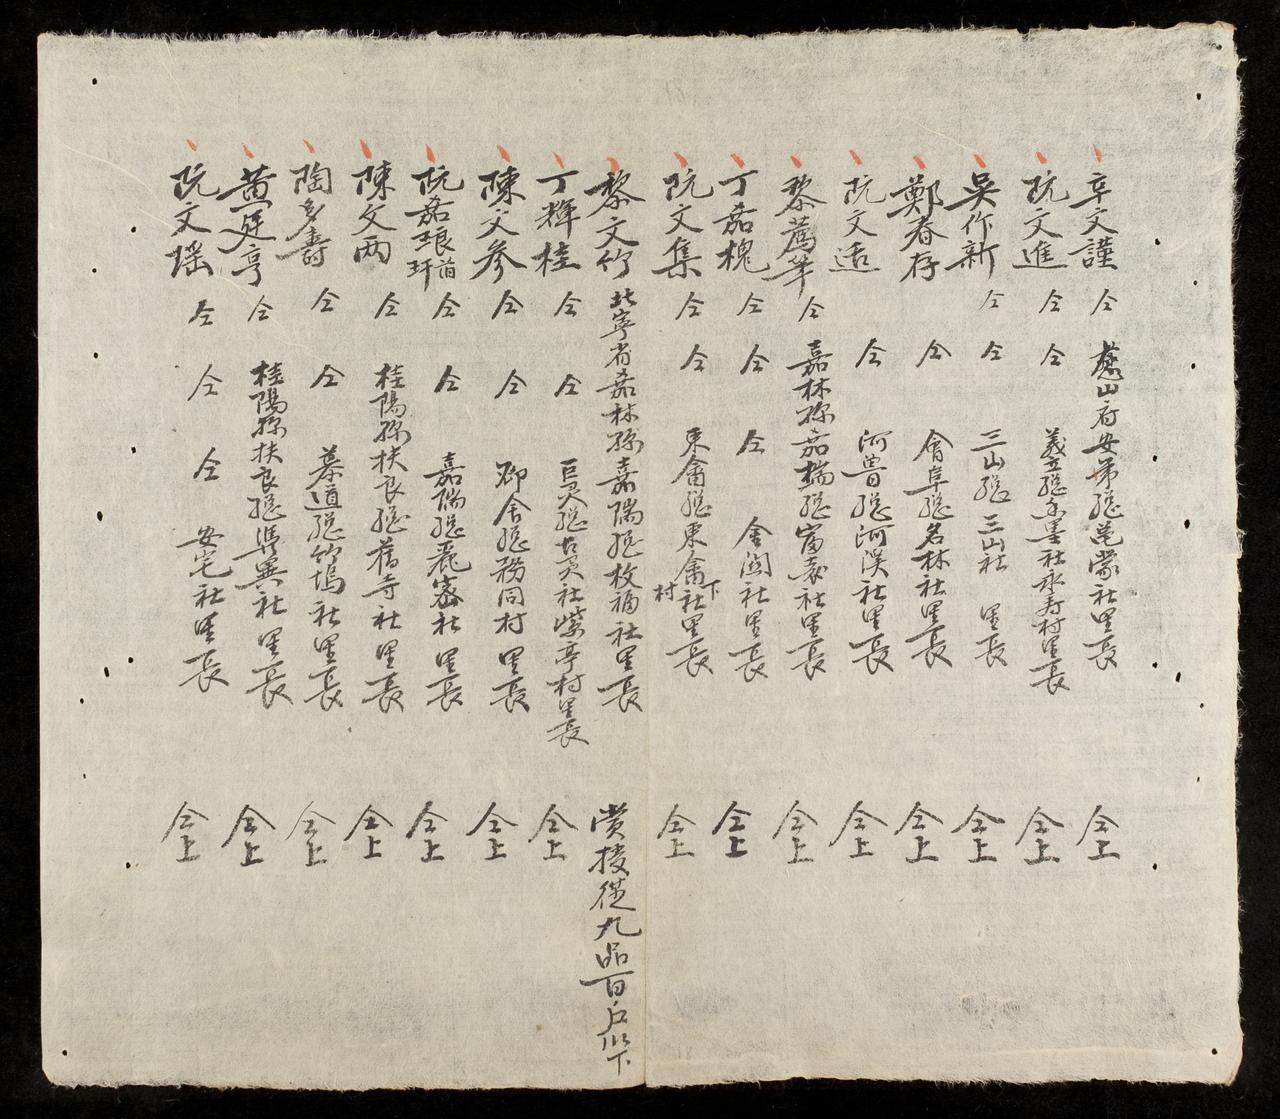 辛文謹 仝 慈山府安第總芭蒙社里長 仝上
阮文進 仝 仝 義立總 社永寿村里長 仝上
吳作新 仝 仝 三山總三山社 里長 仝上
鄭春存 仝 會阜總名林社里長 仝上
阮文适 仝 河魯總河漢社里長 仝上
黎薦 仝 嘉林縣嘉瑞總富 社里長 仝上
丁嘉槐 仝 仝 仝 金関社里長 仝上
阮文集 仝 仝 東畬總東畬社下村里長 仝上
黎文竹 北寧省嘉林縣嘉瑞總枚福社里長 賞授從九品百户以下
丁輝桂 仝 仝 巨灵總古灵社 亭村里長 仝上
陳文參 仝 仝 舍總務同村里長 仝上
阮嘉琅 仝 仝 嘉瑞總麗密社里長 仝上
陳文两 仝 桂陽縣扶良總舊寺社里長 仝上
陶多壽 仝 仝 慕道總竹塢社里長 仝上
黄廷亨 仝 桂陽縣扶良總 社里長 仝上
阮文瑶 仝 仝 仝 安宅社里長 仝上